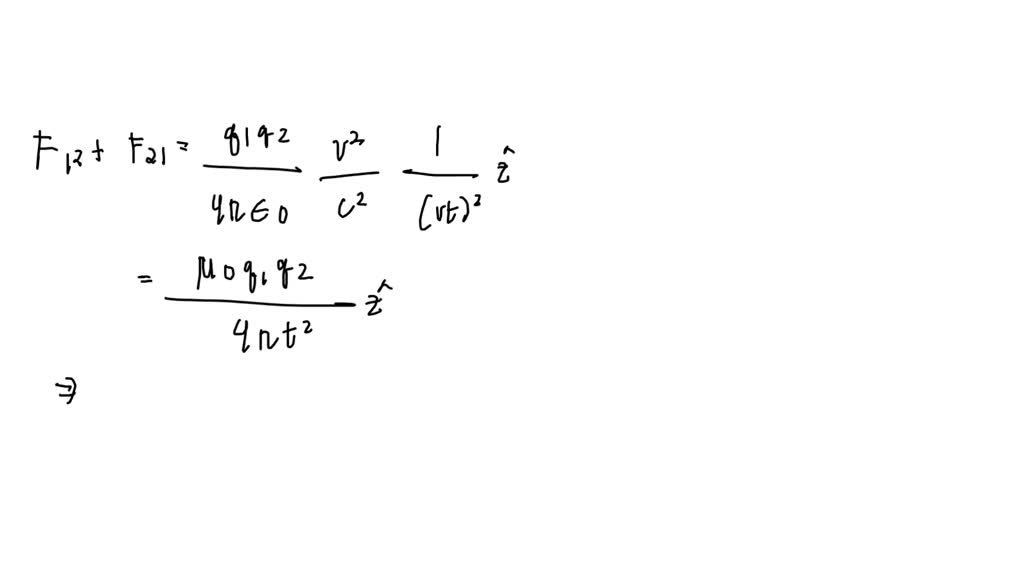 F₁₂ + F₂₁ = q₁q₂ / 4πε₀ v² / c² 1 / (vt)² ẑ
= μ₀q₁q₂ / 4πt² ẑ
⇒